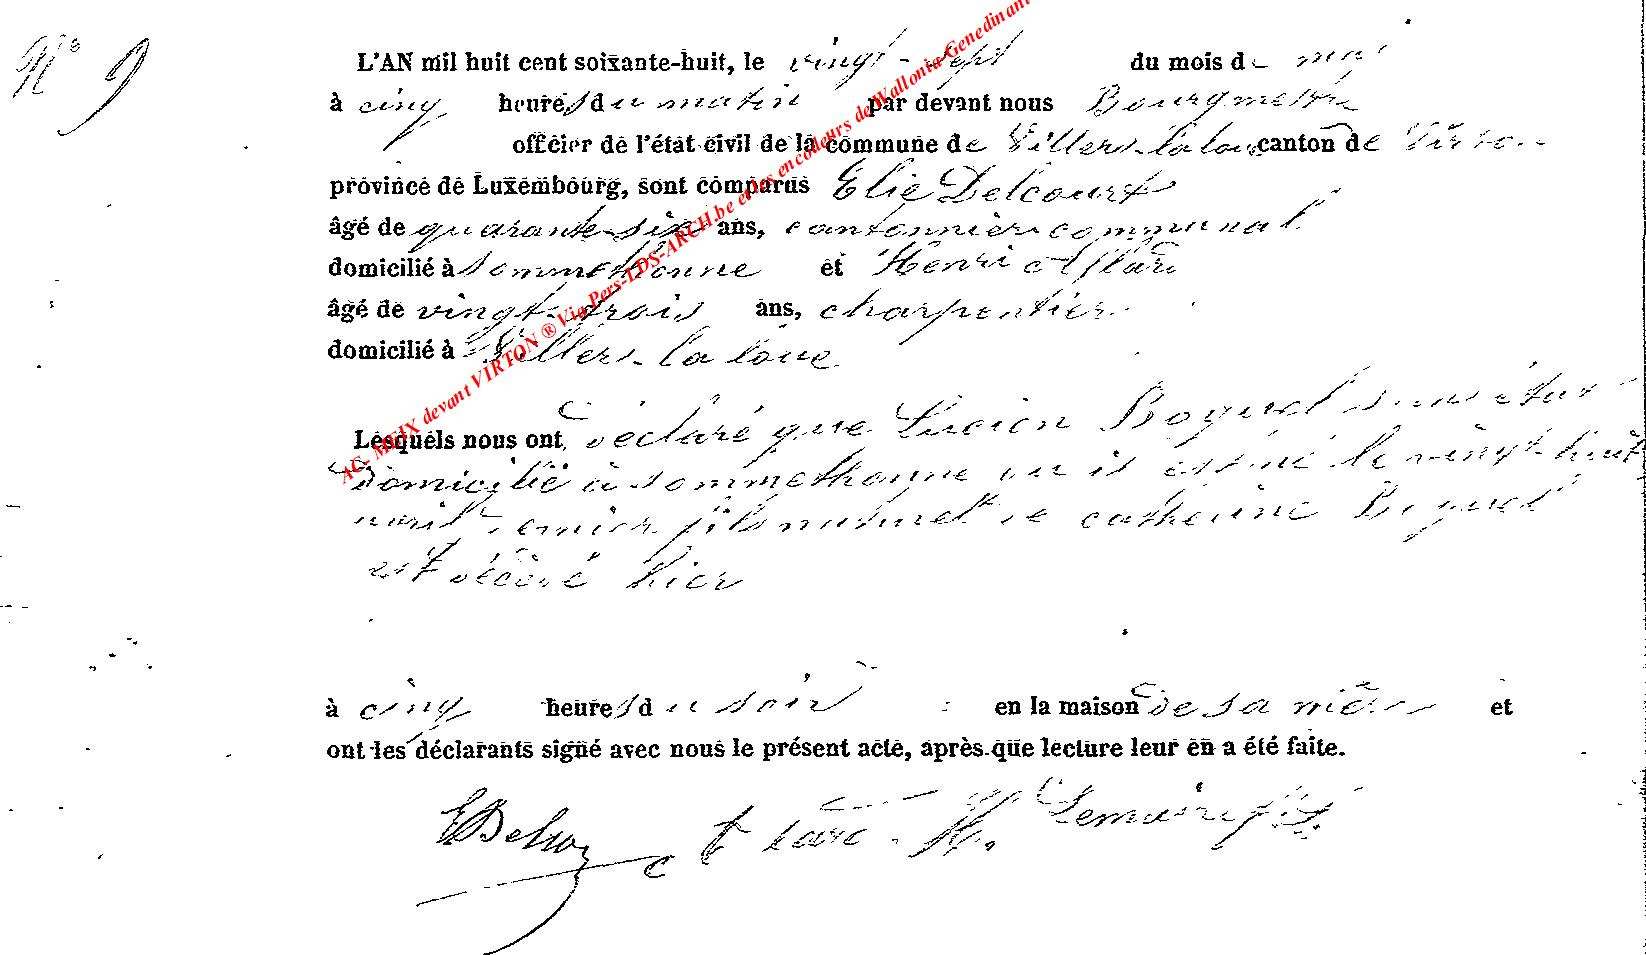 N° 9
L'AN mil huit cent soixante-huit, le vingt-sept du mois de mai
à cinq heures du matin par devant nous Bourgmestre
officier de l'état civil de la commune de Villers-la loue canton de Virton
province de Luxembourg, sont comparus Elie Delcourt
âgé de quarante-six ans, cantonnier communal
domicilié à Sommethonne et Henri
âgé de vingt-trois ans, charpentier
domicilié à Villers-la loue
Lesquels nous ont déclaré que Lucien Boquel sans état
domicilié à Sommethonne où il est né le vingt-huit
avril dernier fils naturel de catherine Boquel
est décédé hier
à cinq heures du soir en la maison de sa mère et
ont les déclarants signé avec nous le présent acte, après que lecture leur en a été faite.
AC. MEIX devant VIRTON ® Via Pers-LDS-ARCH.be et les encodeurs de Wallonia Genedinant